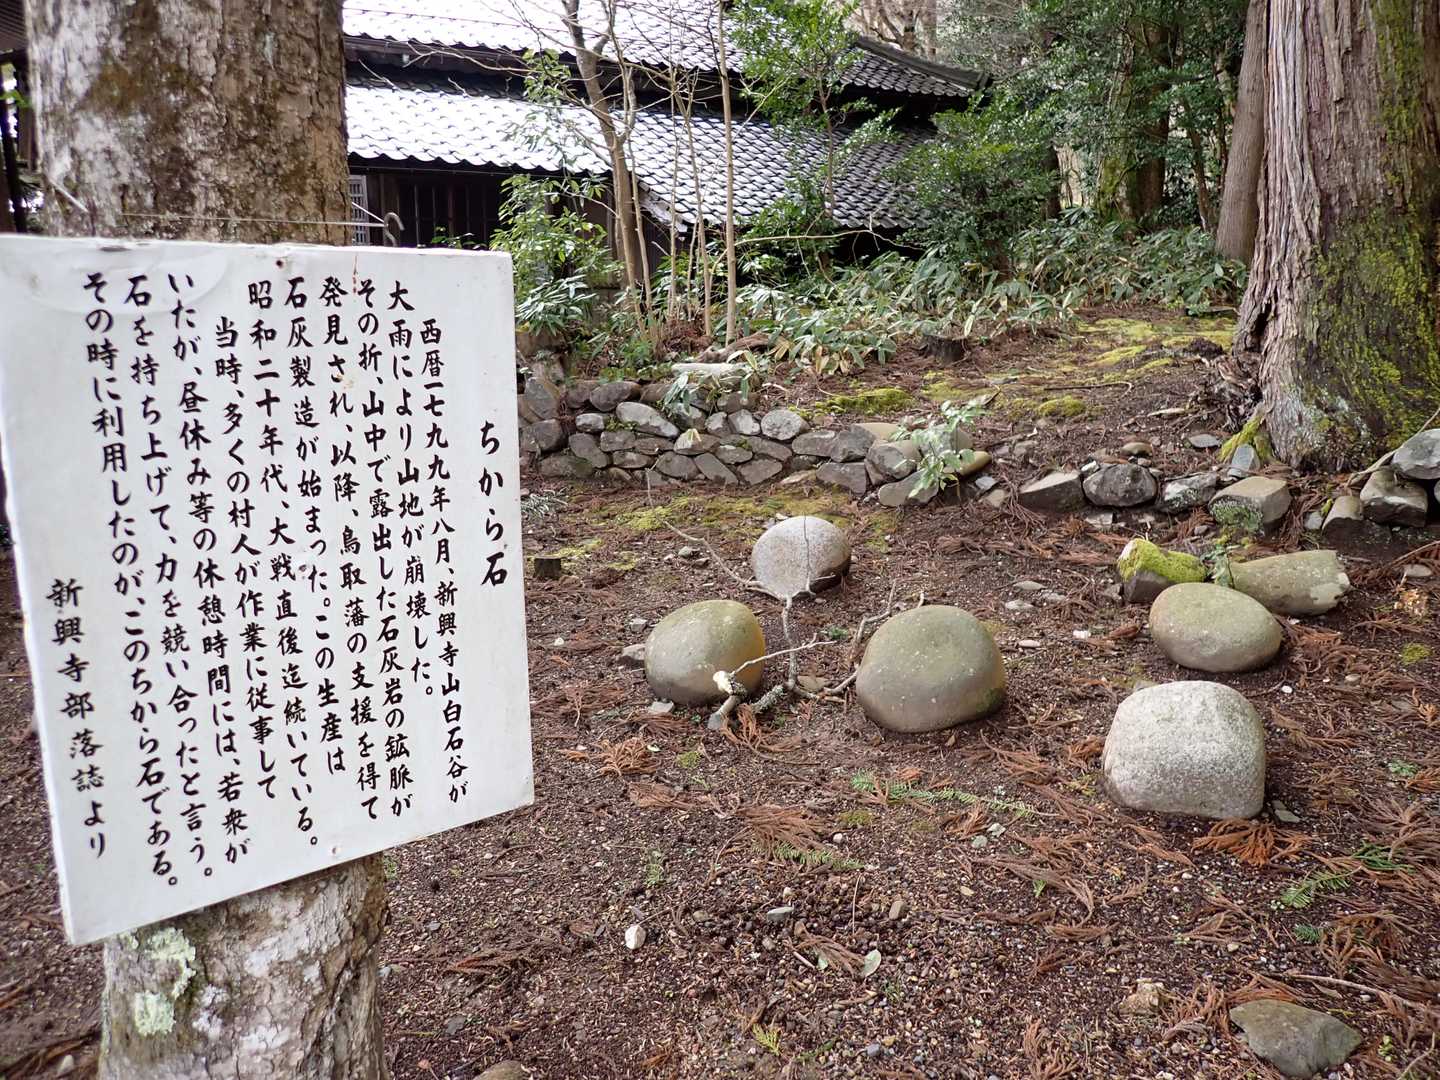 ちから石
西暦一七九九年八月、新興寺山白石谷が
大雨により山地が崩壊した。
その折、山中で露出した石灰岩の鉱脈が
発見され、以降、鳥取藩の支援を得て
石灰製造が始まった。この生産は
昭和二十年代、大戦直後迄続いている。
当時、多くの村人が作業に従事して
いたが、昼休み等の休憩時間には、若衆が
石を持ち上げて、力を競い合ったと言う。
その時に利用したのが、このちから石である。
新興寺部落誌より